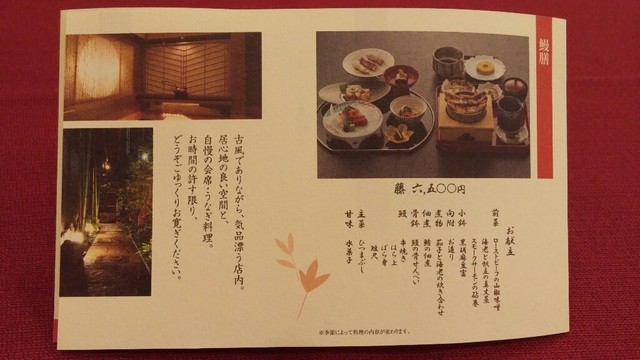 鰻膳
藤 六,五〇〇円
お献立
前菜 ローストビーフの山椒味噌
海老と帆立の真丈蒸
スモークサーモンの砧巻
小鉢 黒胡麻豆富
向附 お造り
煮物 茄子と海老の炊き合わせ
佃煮 鰻の佃煮
骨鉢 鰻の骨せんべい
鰻 串焼き
はら上
ばら身
短尺
主菜 ひつまぶし
甘味 水菓子
※季節によって料理の内容が変わります。
古風でありながら、気品漂う店内。
居心地の良い空間と、
自慢の会席・うなぎ料理。
お時間の許す限り、
どうぞごゆっくりお寛ぎください。